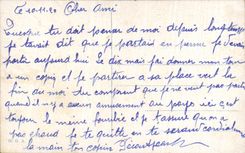 Le 10.11.20 Cher Ami
Encore tu doit penser de moi depuis longtemps
je t'avait dit que je partais en perme je devais
partir aujourd hui le dix mai j'ai donner mon tour
a un copin et je partirer a sa place vert la
fin du moi du comptant que je ne peut pas partir
quand il n'y a aucun amusement au pays ici c'est
toujour la meme fourbie et je t'assure qu'on a
pas chaud je te quitte en te serrant cordialement
la main ton copin